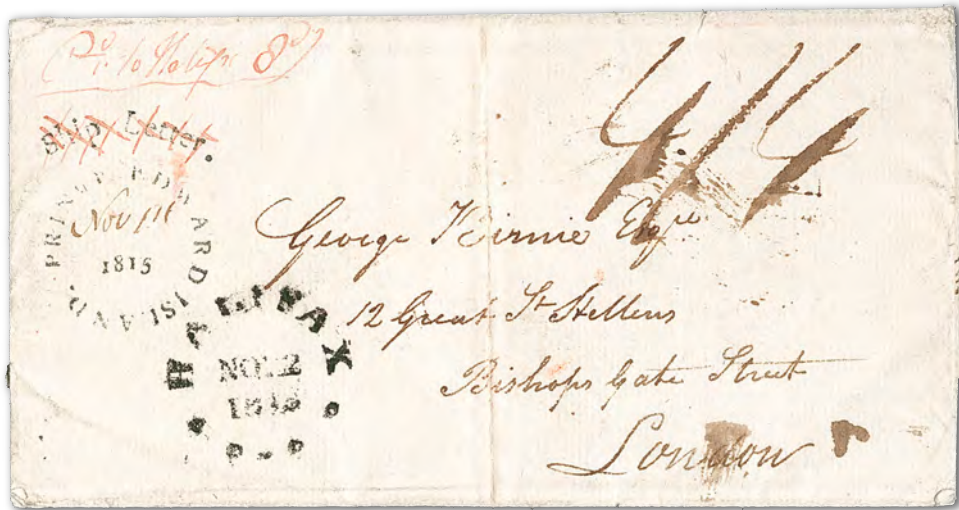 Pd. to Halifx 8d
Ship Letter.
PRINCE EDWARD ISLAND.
Nov 1st
1815
HALIFAX
NO 12
1815
4/4
George Birnie Esqre
12 Great St Hellens
Bishops Gate Street
London